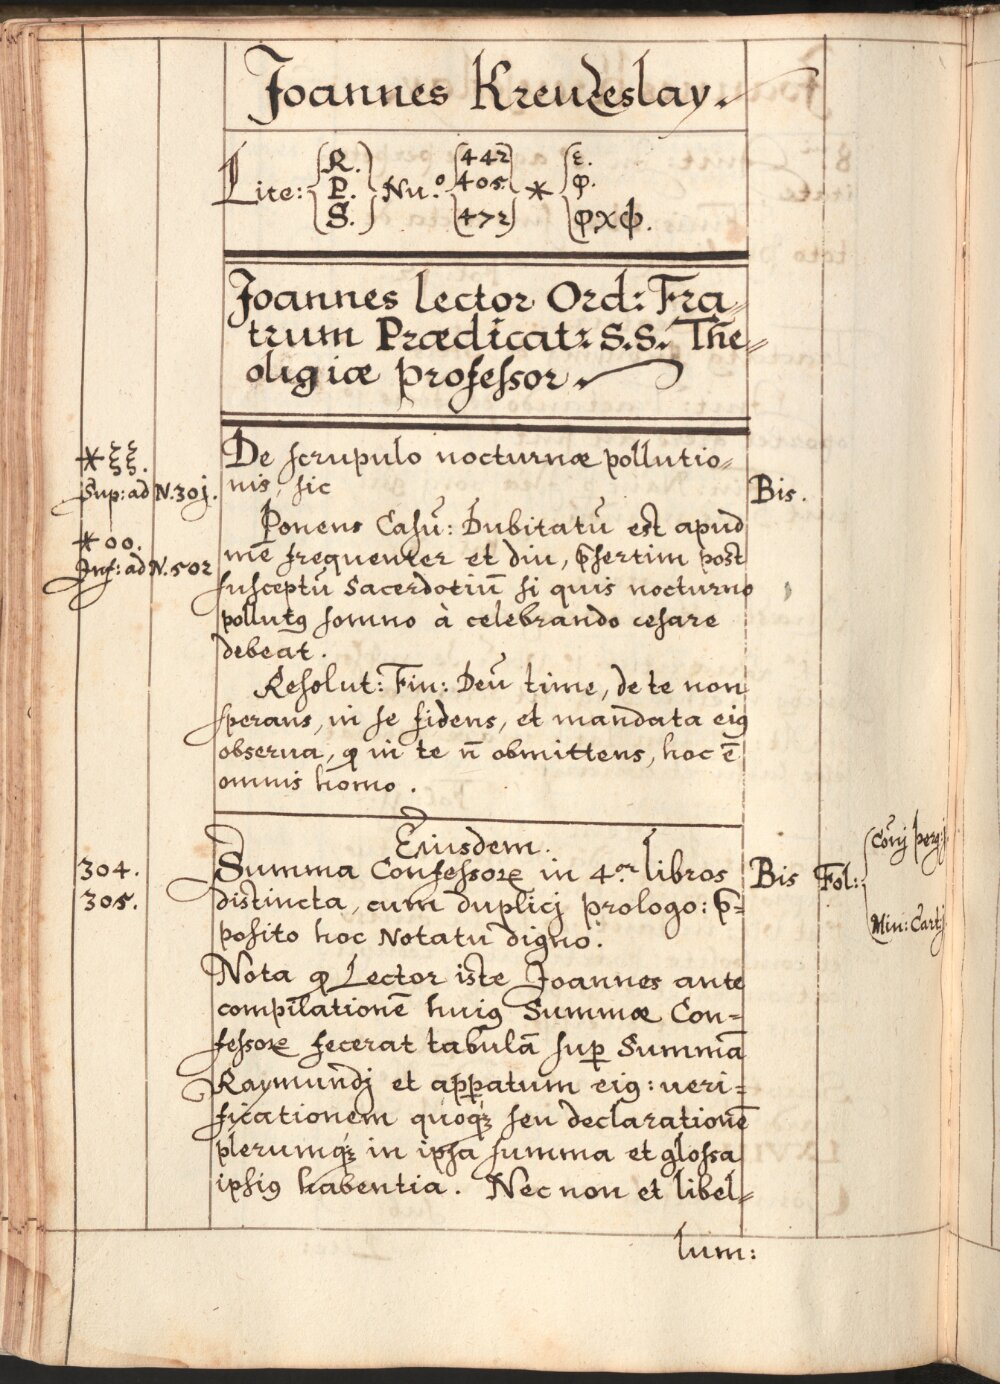 Joannes Kreuczslay.
Lite: R. P. S. Nu.º 442 405 472 * ε. φ. φχφ.
Joannes lector Ord: Fra-
trum Prædicat: S.S. The-
oligiæ professor.
De scrupulo nocturnæ pollutio-
nis, sic
Bis.
*ξξ.
Sup: ad N.301.
*oo.
Inf: ad N.502
Ponens Casū: Dubitatū est apud
mē frequenter et diu, p̄sertim post
susceptū Sacerdotiū si quis nocturno
pollutꝰ somno à celebrando cesare
debeat.
Resolut: Fin: Deū time, de te non
sperans, in se fidens, et mandata eiꝰ
observa, ꝙ in te n̄ obmittens, hoc ē
omnis homo.
Eiusdem.
304.
305.
Summa Confessorꝝ in 4.or libros
distincta, cum duplicj prologo: p̄=
posito hoc Notatu digno.
Bis Fol:
Min: Cartj
Nota ꝙ Lector iste Joannes ante
compilationē huiꝰ Summæ Con=
fessorꝝ fecerat tabulā suꝑ Summā
Raymundj et apꝑatum eiꝰ: veri=
ficationem quoqꝫ seu declarationē
plerumqꝫ in ipsa summa et glossa
ipsiꝰ habentia. Nec non et libel=
lum: